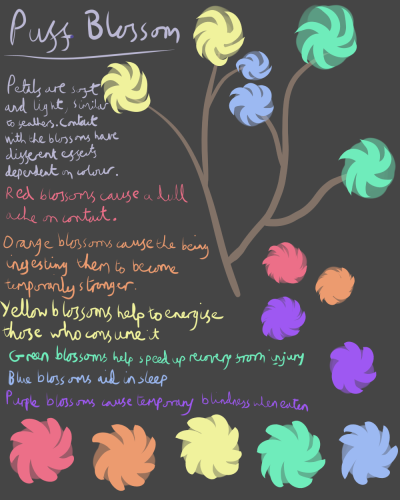 Puff Blossom
Petals are soft
and light, similar
to feathers. Contact
with the blossoms have
different effects
dependent on colour.
Red blossoms cause a dull
ache on contact.
Orange blossoms cause the being
ingesting them to become
temporarily stronger.
Yellow blossoms help to energise
those who consume it
Green blossoms help speed up recovery from injury
Blue blossoms aid in sleep
Purple blossoms cause temporary blindness when eaten